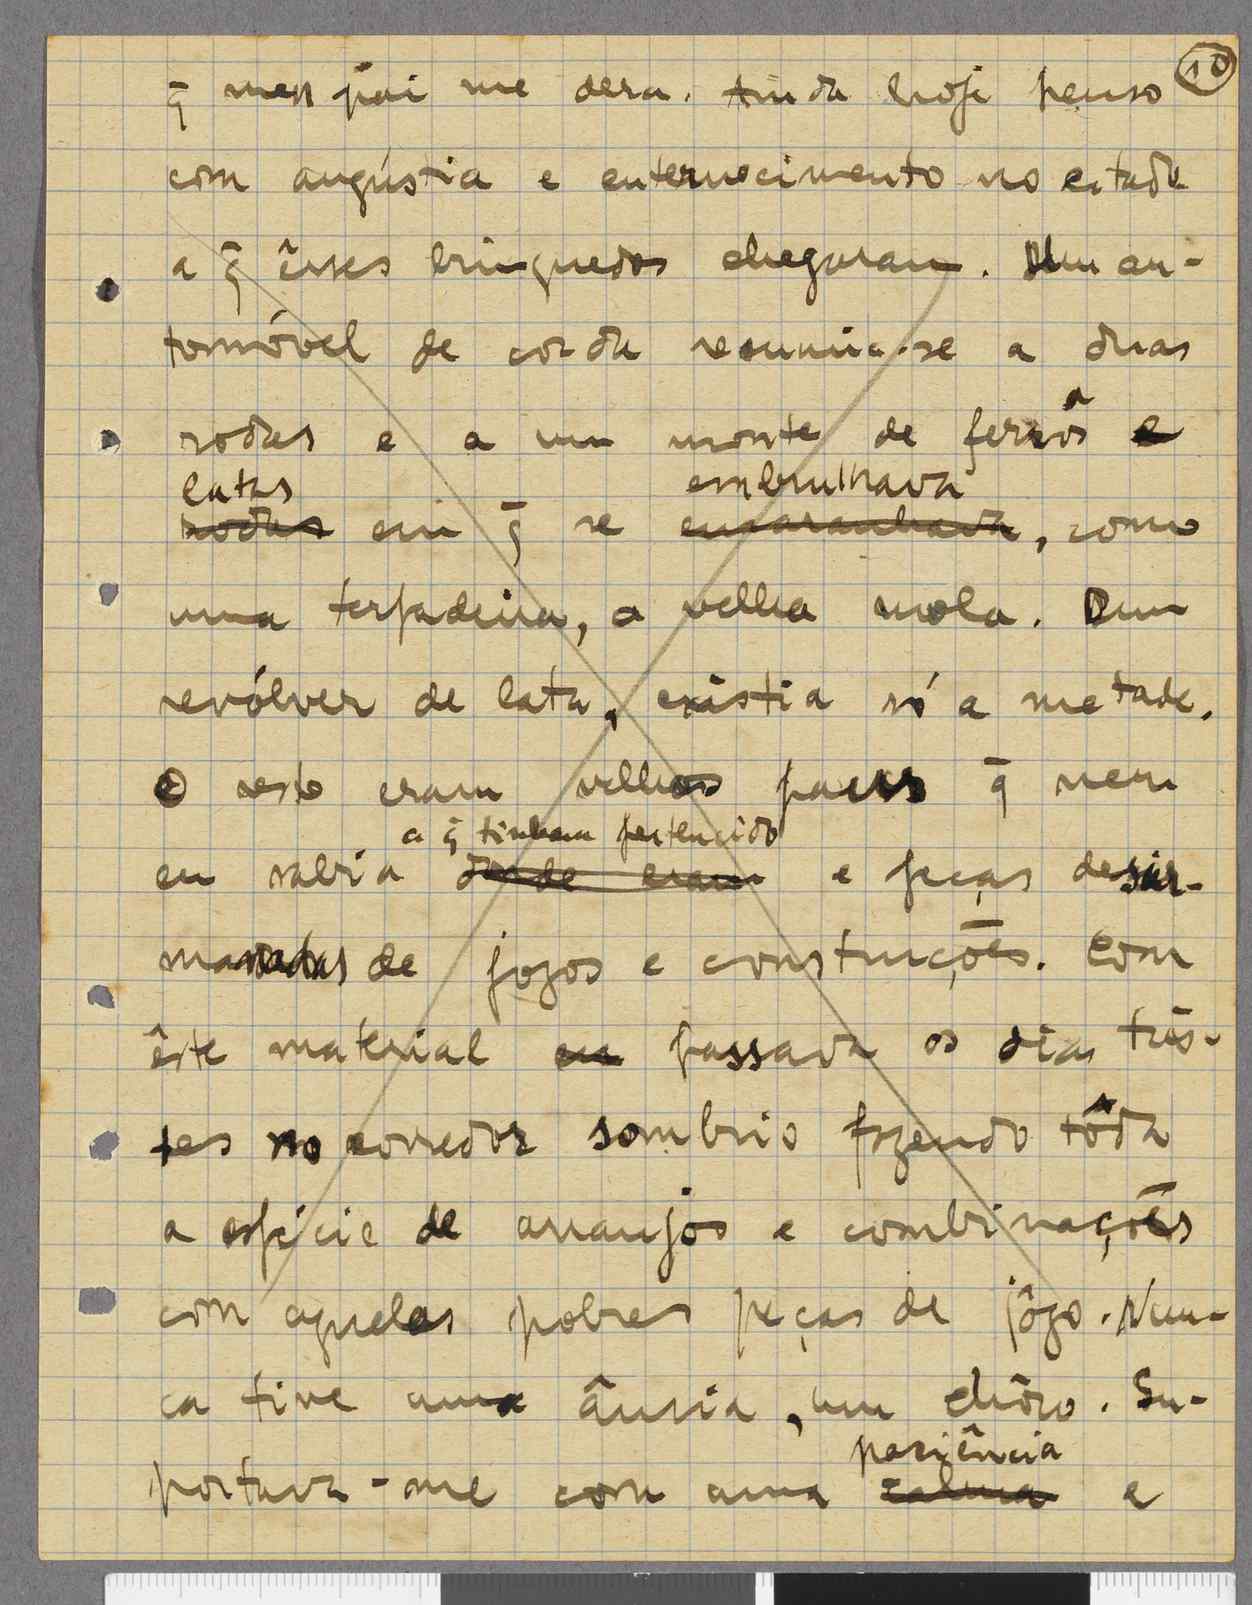 10
q̄ meu pai me dera. Ainda hoje penso
com angústia e enternecimento no estado
a q̄ êsses brinquedos chegaram. Um au-
tomóvel de corda resumia-se a duas
rodas e a um monte de ferros e
latas embrulhava
rodas em q̄ se emaranhava, como
uma terpadeira, a velha mola. Dum
revólver de lata, existia só a metade.
O resto eram velhos paus q̄ nem
a q̄ tinham pertencido
eu sabia donde eram e peças desir-
manadas de jogos e construções. Com
êste material eu passava os dias tris-
tes no corredor sombrio fazendo tôda
a espécie de arranjos e combinações
com aquelas pobres peças de jôgo. Nun-
ca tive uma ânsia, um chôro. Su-
paciência
portava-me com uma calma e